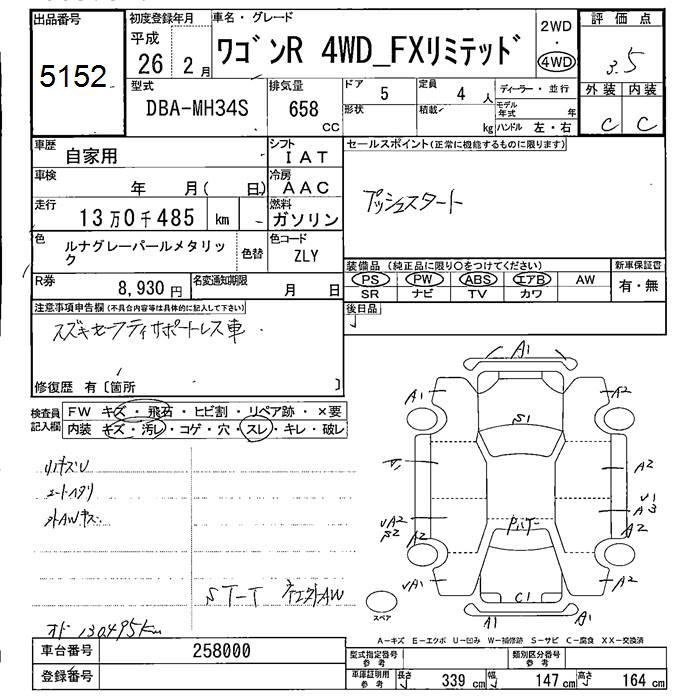 出品番号
5152
初度登録年月
平成
26 2 月
車名・グレード
ワゴンR 4WD_FXリミテッド
2WD
・
4WD
評価点
3.5
外装 内装
C C
型式
DBA-MH34S
排気量
658
CC
ドア 5
定員 4 人
形状
積載 kg
ディーラー・並行
モデル年式 年
ハンドル 左・右
車歴
自家用
シフト
IAT
車検
年 月( 日)
冷房
AAC
走行
13万0千485 km
燃料
ガソリン
色
ルナグレーパールメタリック
色替
色コード
ZLY
R券
8,930 円
名変通知期限
月 日
セールスポイント(正常に機能するものに限ります)
プッシュスタート
装備品(純正品に限り○をつけてください)
PS PW ABS エアB AW
SR ナビ TV カワ
新車保証書
有・無
後日品
注意事項申告欄(不具合内容等は具体的に記入して下さい)
スズキセーフティサポートレス車
修復歴 有〔箇所 〕
検査員記入欄
FW キズ・飛石・ヒビ割・リペア跡・×要
内装 キズ・汚レ・コゲ・穴・スレ・キレ・破レ
シートヘタリ
外AWキズ
オド 130495km
車台番号
258000
登録番号
A1
A1
A2
S1
A2
V1
A3
A2
A2
UA2
S2
A2
UA1
C1
A1
A1
スペア
A-キズ E-エクボ U-凹み W-補修跡 S-サビ C-腐食 XX-交換済
型式指定番号
参考
類別区分番号
参考
車庫証明用
参考
長さ 339 cm
幅 147 cm
高さ 164 cm